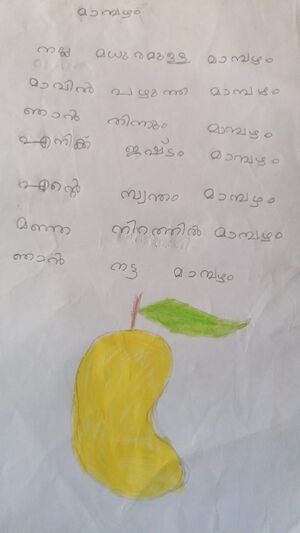 മാമ്പഴം
നല്ല മധുരമുള്ള മാമ്പഴം
മാവിൻ പഴുത്ത മാമ്പഴം
ഞാൻ തിന്നും മാമ്പഴം
എനിക്ക് ഇഷ്ടം മാമ്പഴം
എന്റെ സ്വന്തം മാമ്പഴം
മഞ്ഞ നിറത്തിൽ മാമ്പഴം
ഞാൻ നട്ട മാമ്പഴം